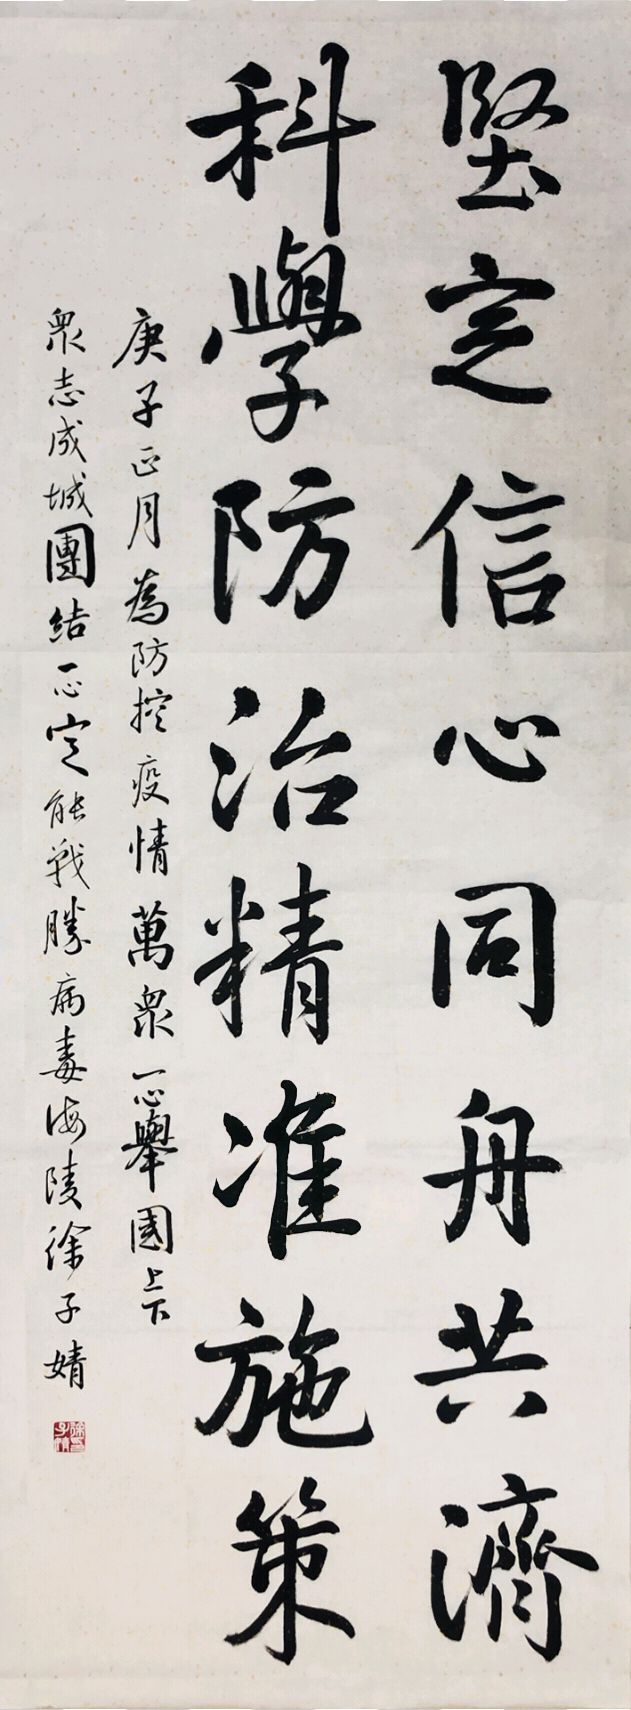 堅定信心同舟共濟
科學防治精准施策
庚子正月為防控疫情萬衆一心舉國上下
衆志成城團結一心定能戰勝病毒海陵徐子婧